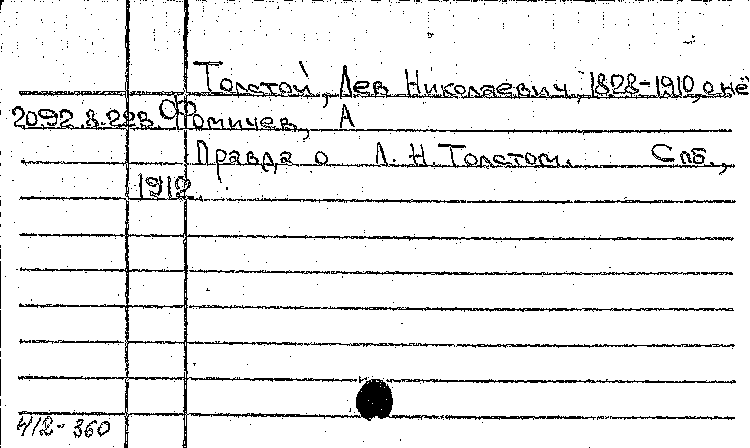 Толстой, Лев Николаевич, 1828-1910, о нё
2092.8.22в. Фомичев, А
Правда о Л. Н. Толстом. Спб.,
1912.
412-360